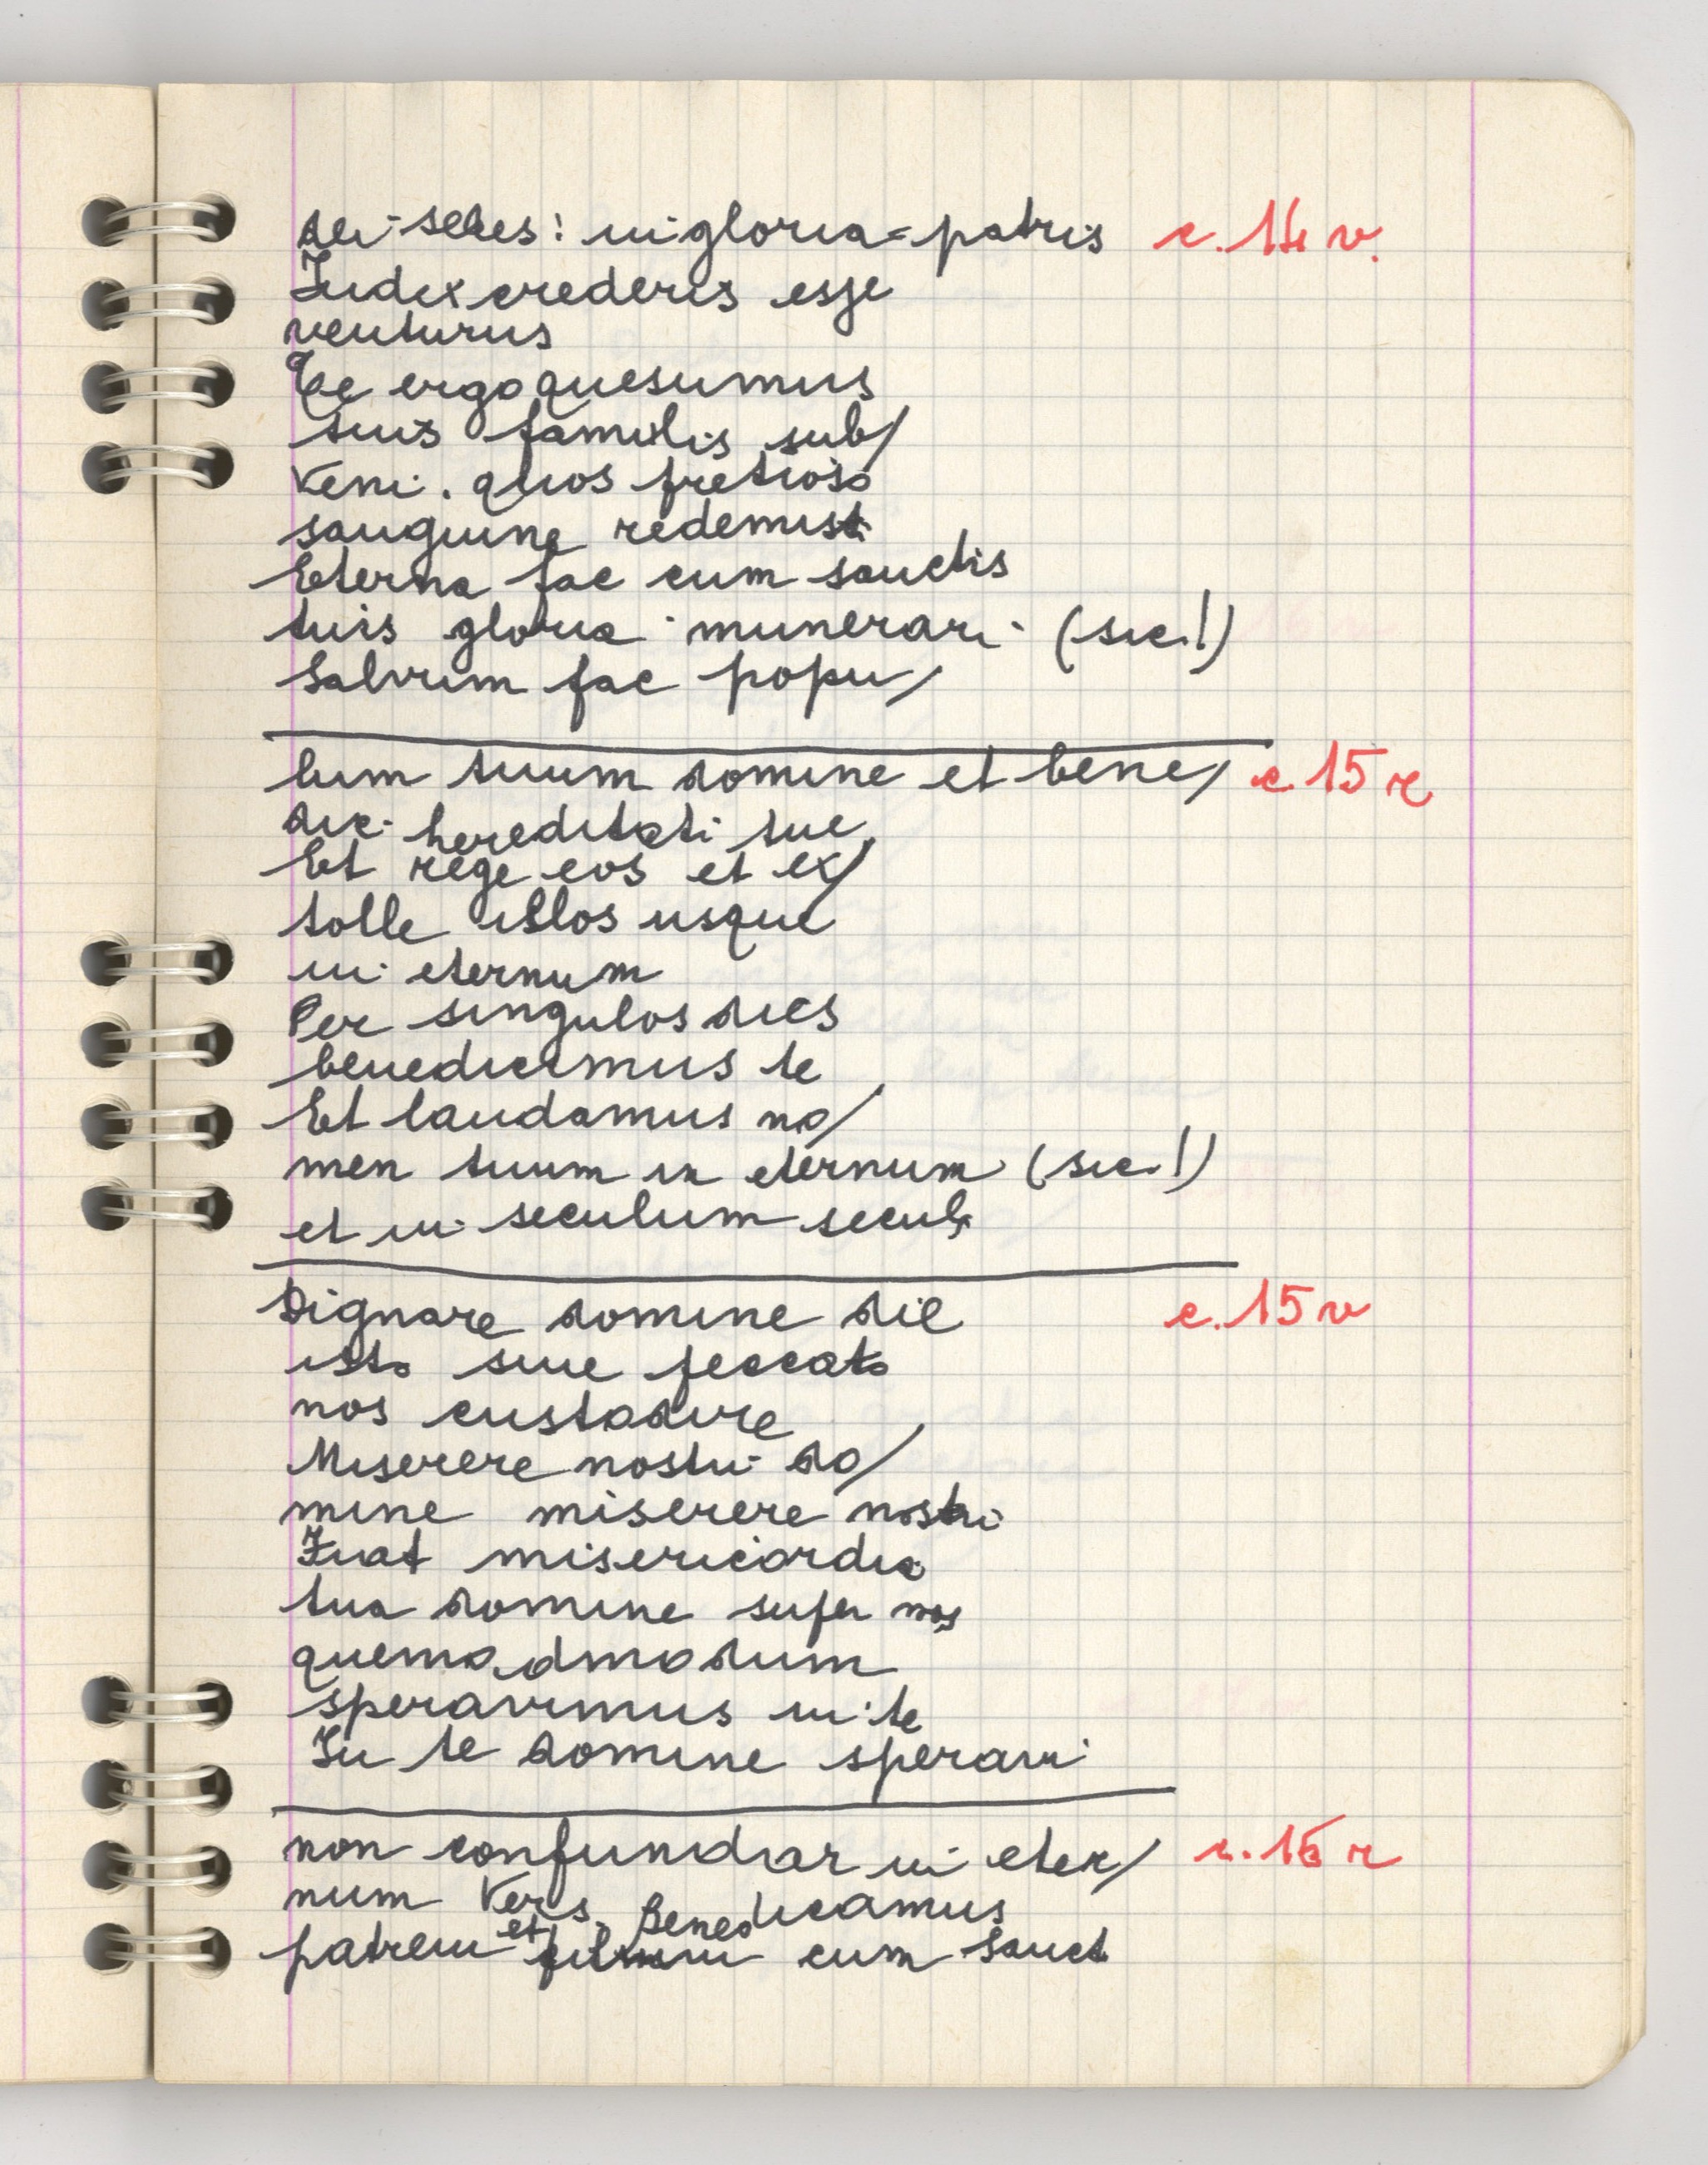 dei sedes: in gloria patris c. 14 v.
Iudex crederis esse
venturus
Te ergo quesumus
tuis famulis sub/
veni. quos pretioso
sanguine redemisti
Eterna fac cum sanctis
tuis gloria munerari (sic!)
Salvum fac popu/
lum tuum domine et bene/ c. 15 r
dic hereditati tue
Et rege eos et ex/
tolle illos usque
in eternum
Per singulos dies
benedicimus te
Et laudamus no/
men tuum in eternum (sic!)
et in seculum seculi
Dignare domine die c. 15 v
isto sine peccato
nos custodire
Miserere nostri do/
mine miserere nostri
Fiat misericordia
tua domine super nos
quemadmodum
speravimus in te
In te domine speravi
non confundar in eter/ c. 16 r
num Vers. Benedicamus
patrem et filium cum Sanct